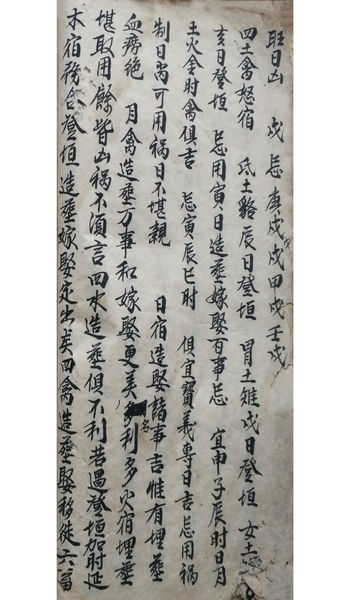 旺日凶　戌　忌庚戌戌甲戌壬戌
四土禽怒宿　氐土貉辰日登垣　胃土雉戌日登垣　女土
亥日登垣　忌用寅日造葬嫁娶百事忌　宜申子辰时日月
土火金时禽俱吉　忌寅辰巳时　俱宜寳義專日吉忌用禍
制日尚可用禍日不堪親　日宿造娶諸事吉惟有埋葬
血痨绝　月禽造葬万事和嫁娶更美名利多火宿埋葬
堪取用餘皆凶禍不須言四水造葬俱不利若遇登垣加时延
木宿務合登垣造葬嫁娶定出秀四禽造葬娶移徙六畜